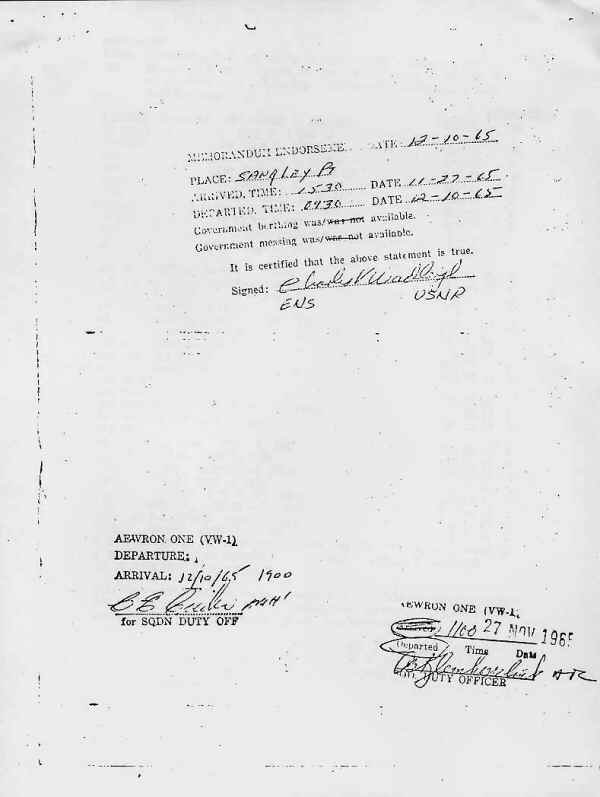 MEMORANDUM ENDORSEME.. DATE: 12-10-65
PLACE: SANGLEY Pt
ARRIVED, TIME: 1530 DATE 11-27-65
DEPARTED, TIME: 0730 DATE 12-10-65
Government berthing was/was not available.
Government messing was/was not available.
It is certified that the above statement is true.
Signed: Charles
ENS USNR
AEWRON ONE (VW-1)
DEPARTURE:
ARRIVAL: 12/10/65 1900
for SQDN DUTY OFF
AEWRON ONE (VW-1)
1100 27 NOV 1965
Departed Time Date
DUTY OFFICER